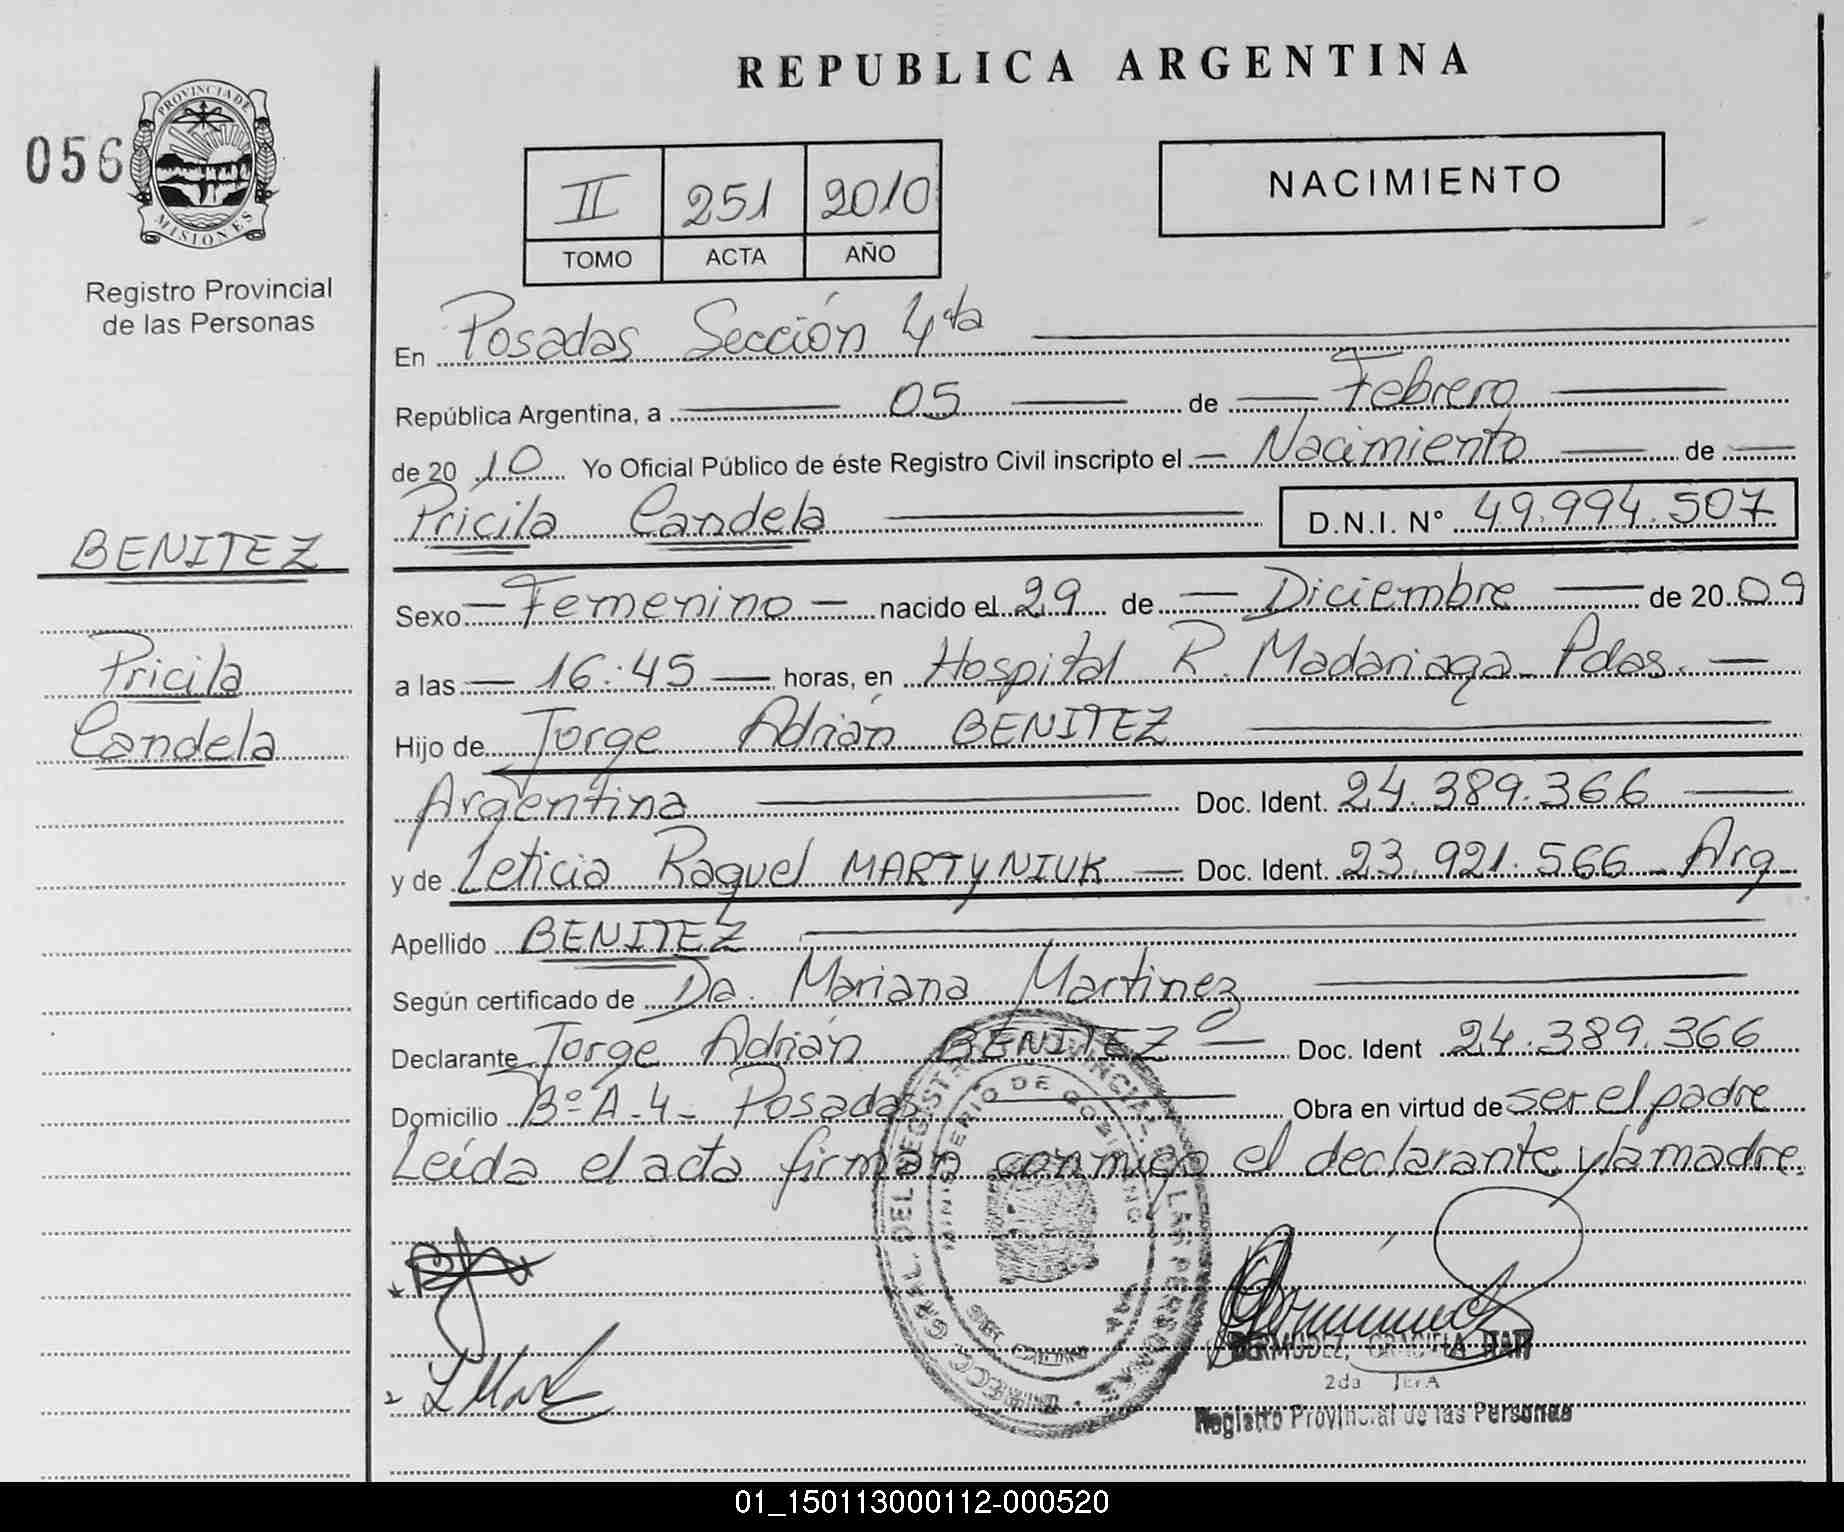 REPUBLICA ARGENTINA
056
PROVINCIA DE
MISIONES
Registro Provincial
de las Personas
II 251 2010
TOMO ACTA AÑO
NACIMIENTO
En Posadas Sección 4ta
República Argentina, a 05 de Febrero
de 2010 Yo Oficial Público de éste Registro Civil inscripto el Nacimiento de
Pricila Candela D.N.I. Nº 49.994.507
BENITEZ
Pricila
Candela
Sexo Femenino nacido el 29 de Diciembre de 2009
a las 16:45 horas, en Hospital R. Madariaga - Pdas.
Hijo de Jorge Adrián BENITEZ
Argentina Doc. Ident. 24.389.366
y de Leticia Raquel MARTYNIUK Doc. Ident. 23.921.566 - Arg.
Apellido BENITEZ
Según certificado de Da. Mariana Martinez
Declarante Jorge Adrián BENITEZ Doc. Ident 24.389.366
Domicilio Bº A-4- Posadas Obra en virtud de ser el padre
Leída el acta firman conmigo el declarante y la madre.
MINISTERIO DE GOBIERNO
BERMUDEZ, GRACIELA ITATI
2da
Registro Provincial de las Personas
01_150113000112-000520